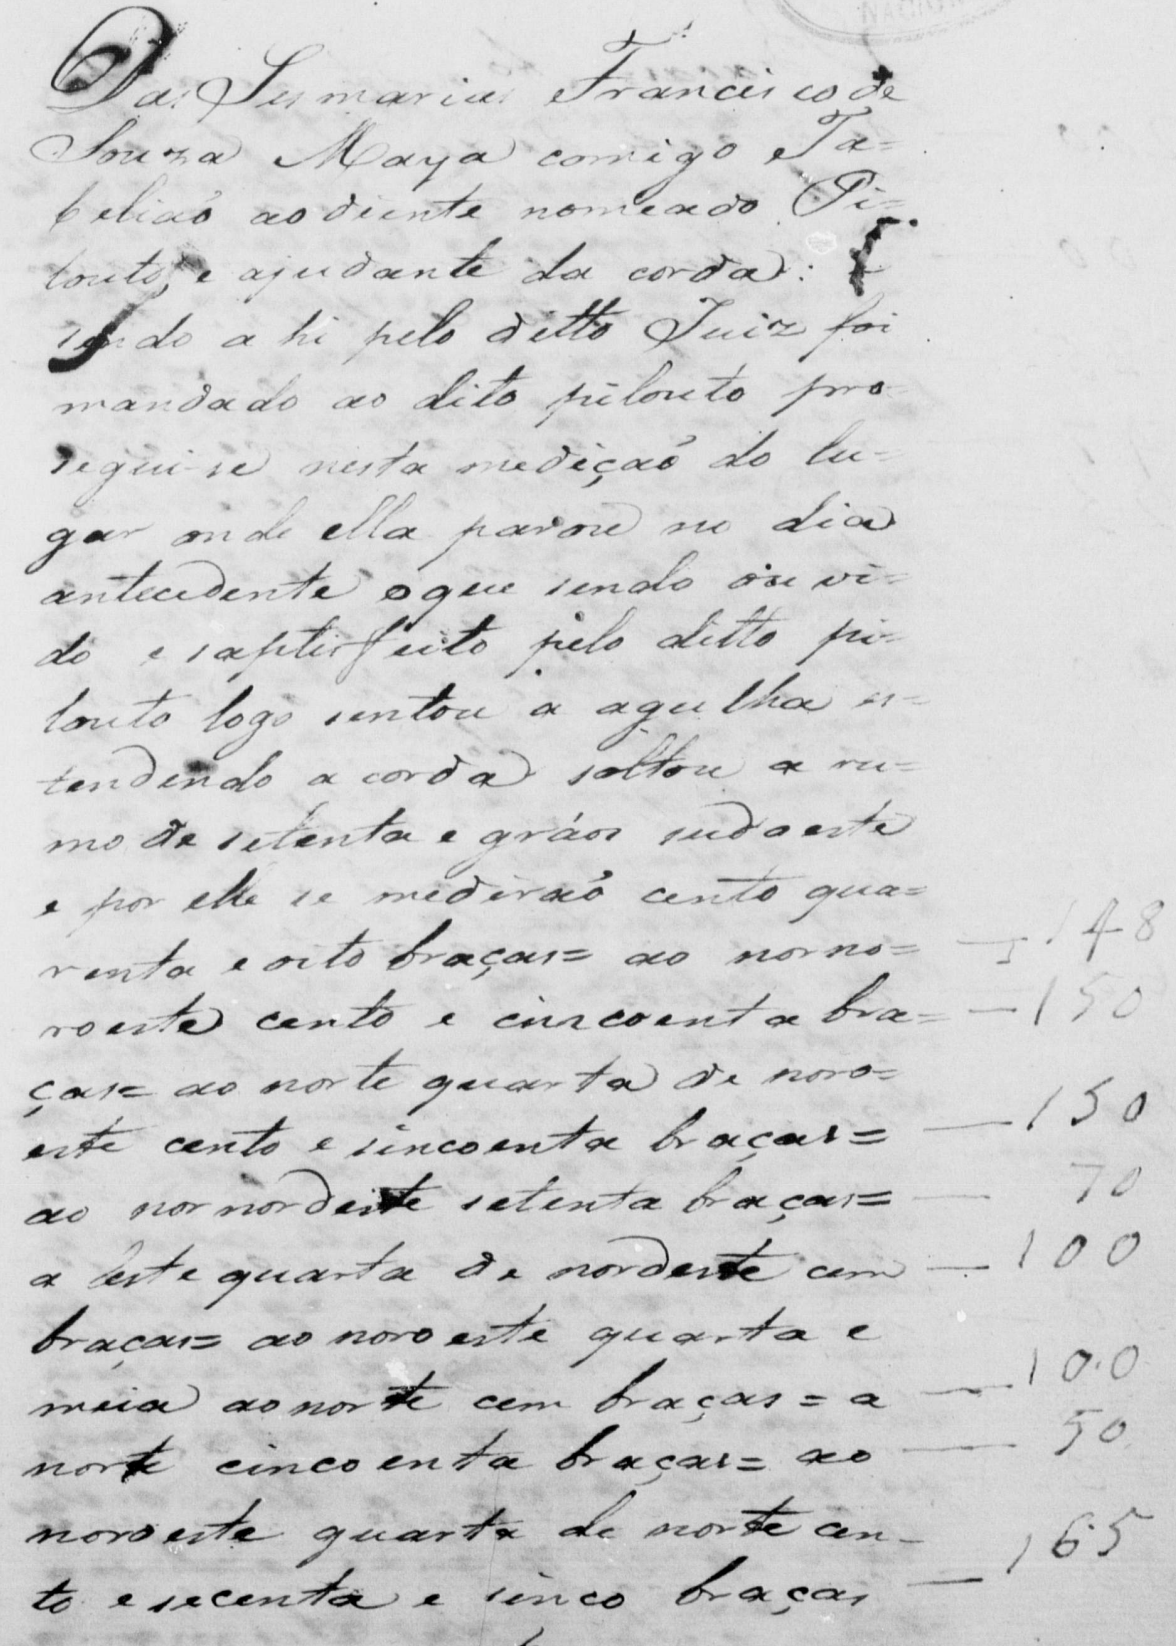 Das Sesmarias Francisco de
Souza Maya comigo Ta=
beliaõ ao diente nomeado Pi=
louto, e ajudante da corda: E
sendo a hi pelo ditto Juiz foi
mandado ao dito pilouto pro
segui-se nesta mediçaõ do lu=
gar onde ella parou no dia
antecedente o que sendo ouvi=
do e saptisfeito pelo ditto pi=
louto logo sentou a agulha es=
tendendo a corda soltou a ru=
mo de setenta e gráos sudoeste
e por elle se mediraõ cento qua=
renta e oito braças= ao norno= — 148
roeste cento e cincoenta bra= — 150
ças= ao norte quarta de noro=
este cento e sincoenta braças= — 150
ao nornordeste setenta braças= — 70
a leste quarta de nordeste cem — 100
braças= ao noroeste quarta e
meia ao norte cem braças = a — 100
norte cincoenta braças= ao — 50
noroeste quarta de norte cen-
to e secenta e sinco braças — 165